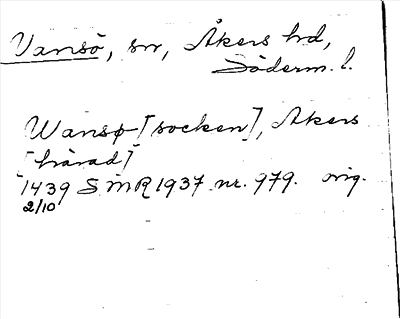 Vansö, sn, Åkers hd,
Söderm. l.
Wansø [socken], Akers
[härad]
1439 SMR 1937 nr. 979. orig.
2/10